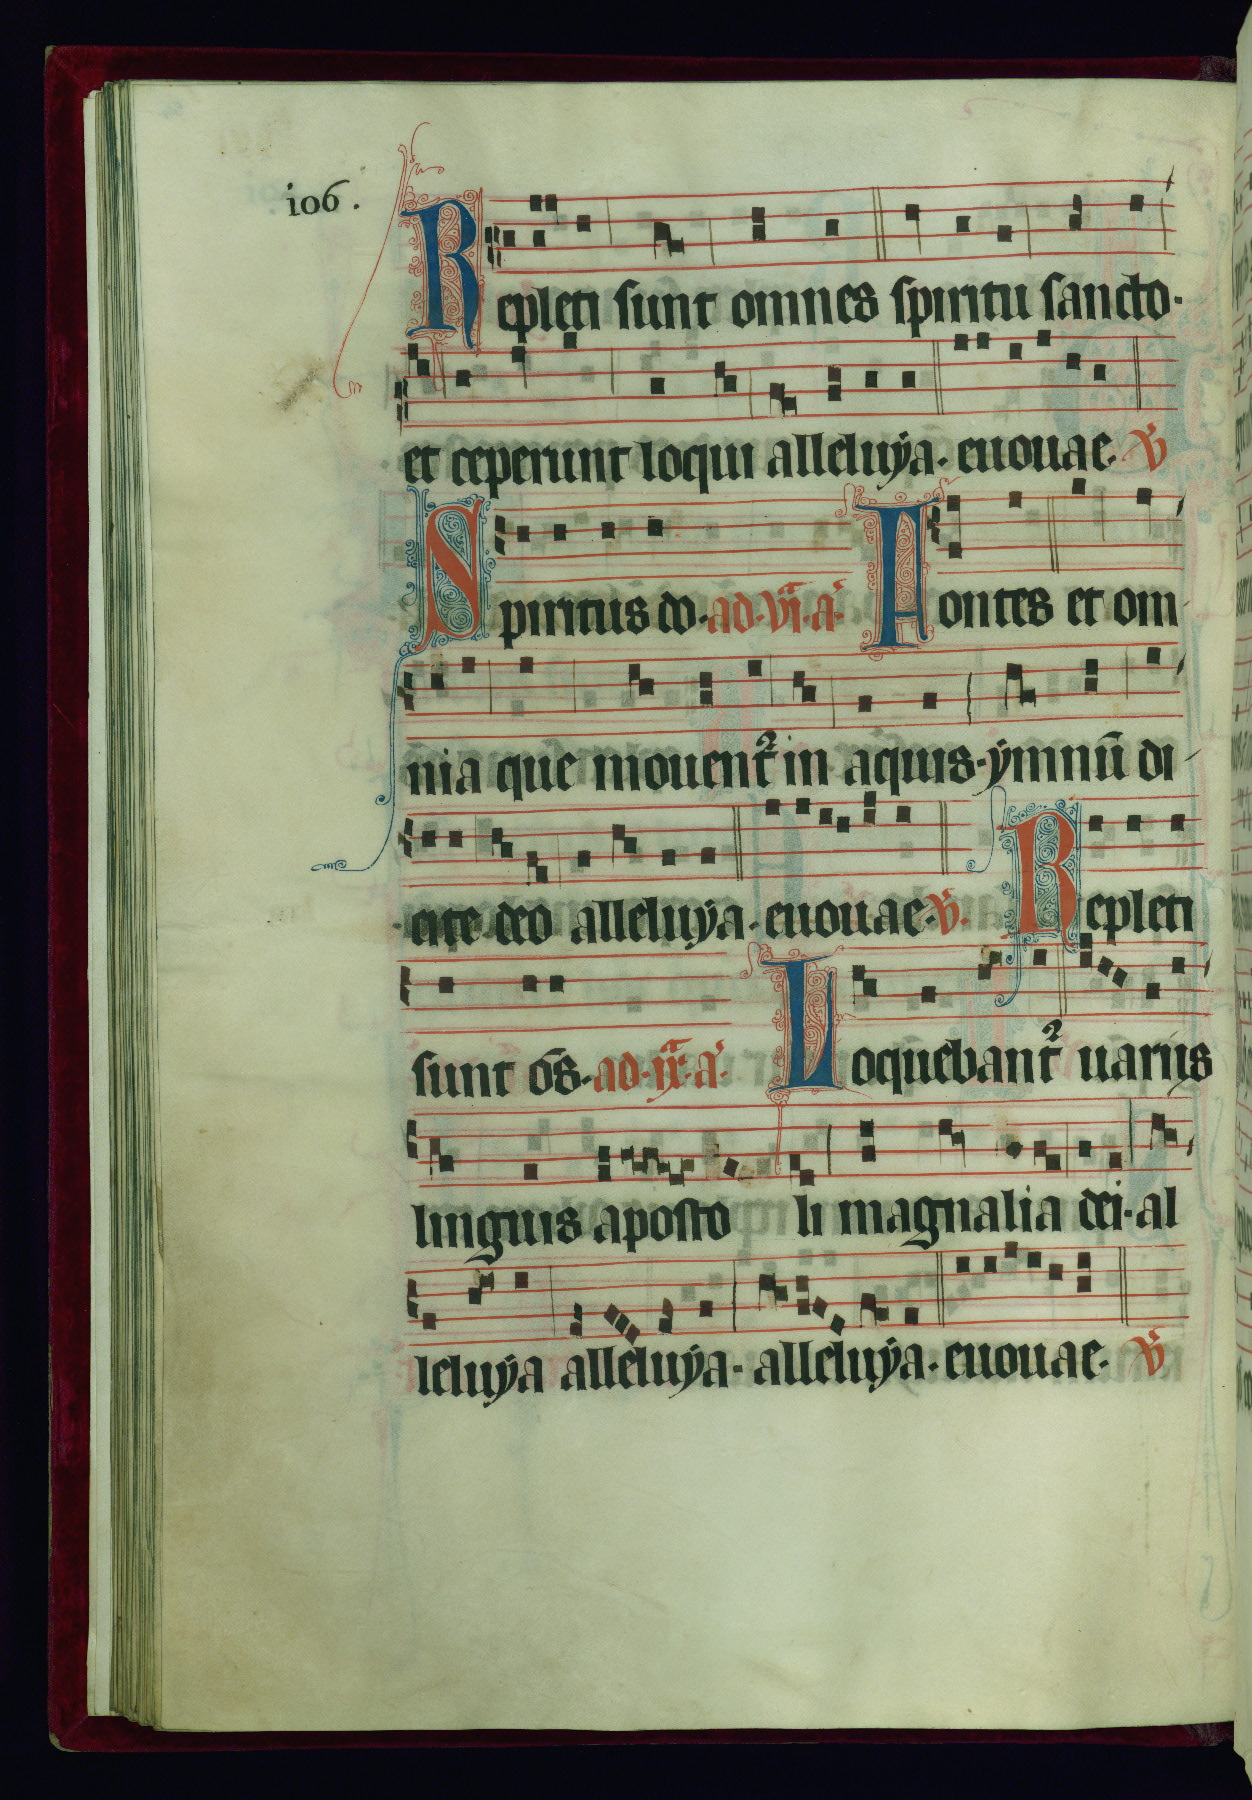 106.
Repleti sunt omnes spiritu sancto.
et ceperunt loqui alleluÿa. euouae. v̄
Spiritus do. ad. vi.ᵃ a.̄ Fontes et om
nia que mouent᷑ in aquis. ẏmnū di
cite deo alleluÿa. euouae. v̄. Repleti
sunt oēs. ad. ix.ᵃ a.̄ Loquebant᷑ uarijs
linguis aposto li magnalia dei. al
leluÿa alleluÿa. alleluÿa. euouae. v̄